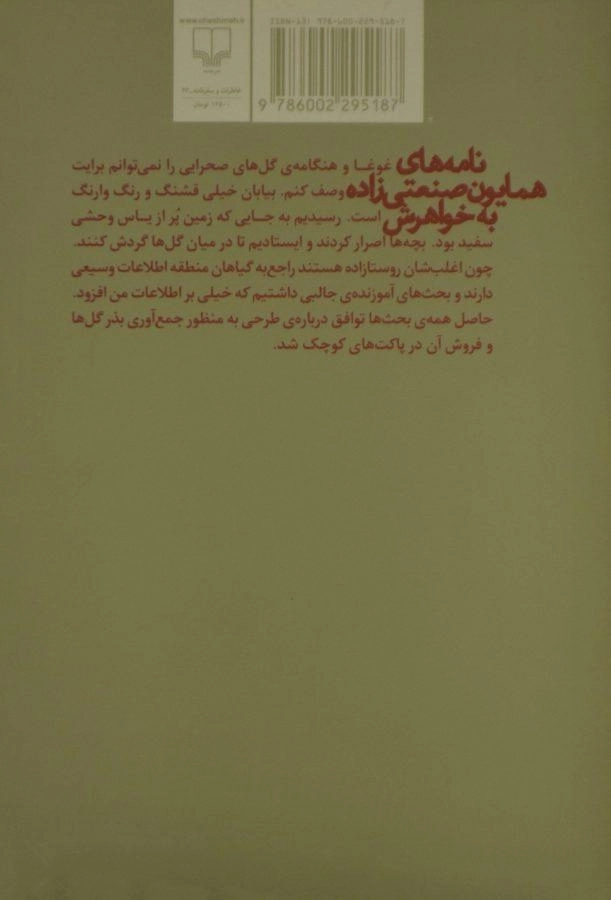 www.cheshmeh.ir
ISBN-13: 978-600-229-518-7
خاطرات و سفرنامه
تومان
9 786002 295187
نامه‌های
همایون صنعتی‌زاده
به خواهرش
غوغا و هنگامه‌ی گل‌های صحرایی را نمی‌توانم برایت
وصف کنم. بیابان خیلی قشنگ و رنگ وارنگ
است. رسیدیم به جایی که زمین پُر از یاس وحشی
سفید بود. بچه‌ها اصرار کردند و ایستادیم تا در میان گل‌ها گردش کنند.
چون اغلب‌شان روستازاده هستند راجع‌به گیاهان منطقه اطلاعات وسیعی
دارند و بحث‌های آموزنده‌ی جالبی داشتیم که خیلی بر اطلاعات من افزود.
حاصل همه‌ی بحث‌ها توافق درباره‌ی طرحی به منظور جمع‌آوری بذر گل‌ها
و فروش آن در پاکت‌های کوچک شد.